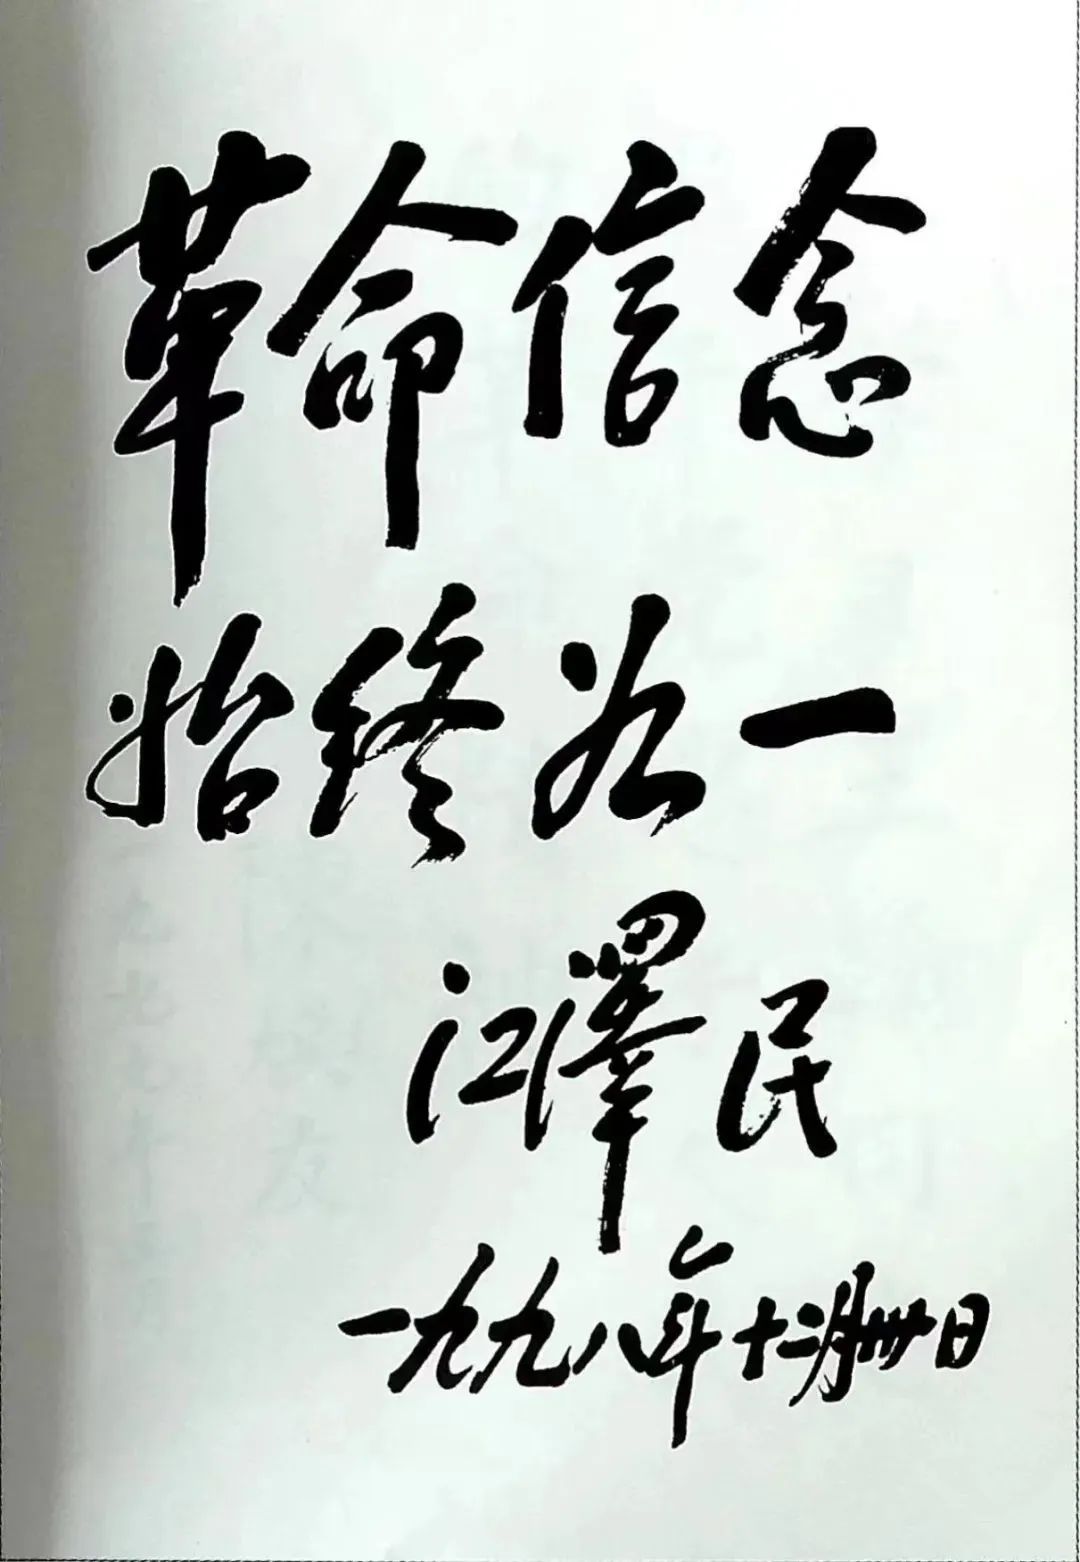 革命信念
始终如一
江澤民
一九九八年十二月卅日